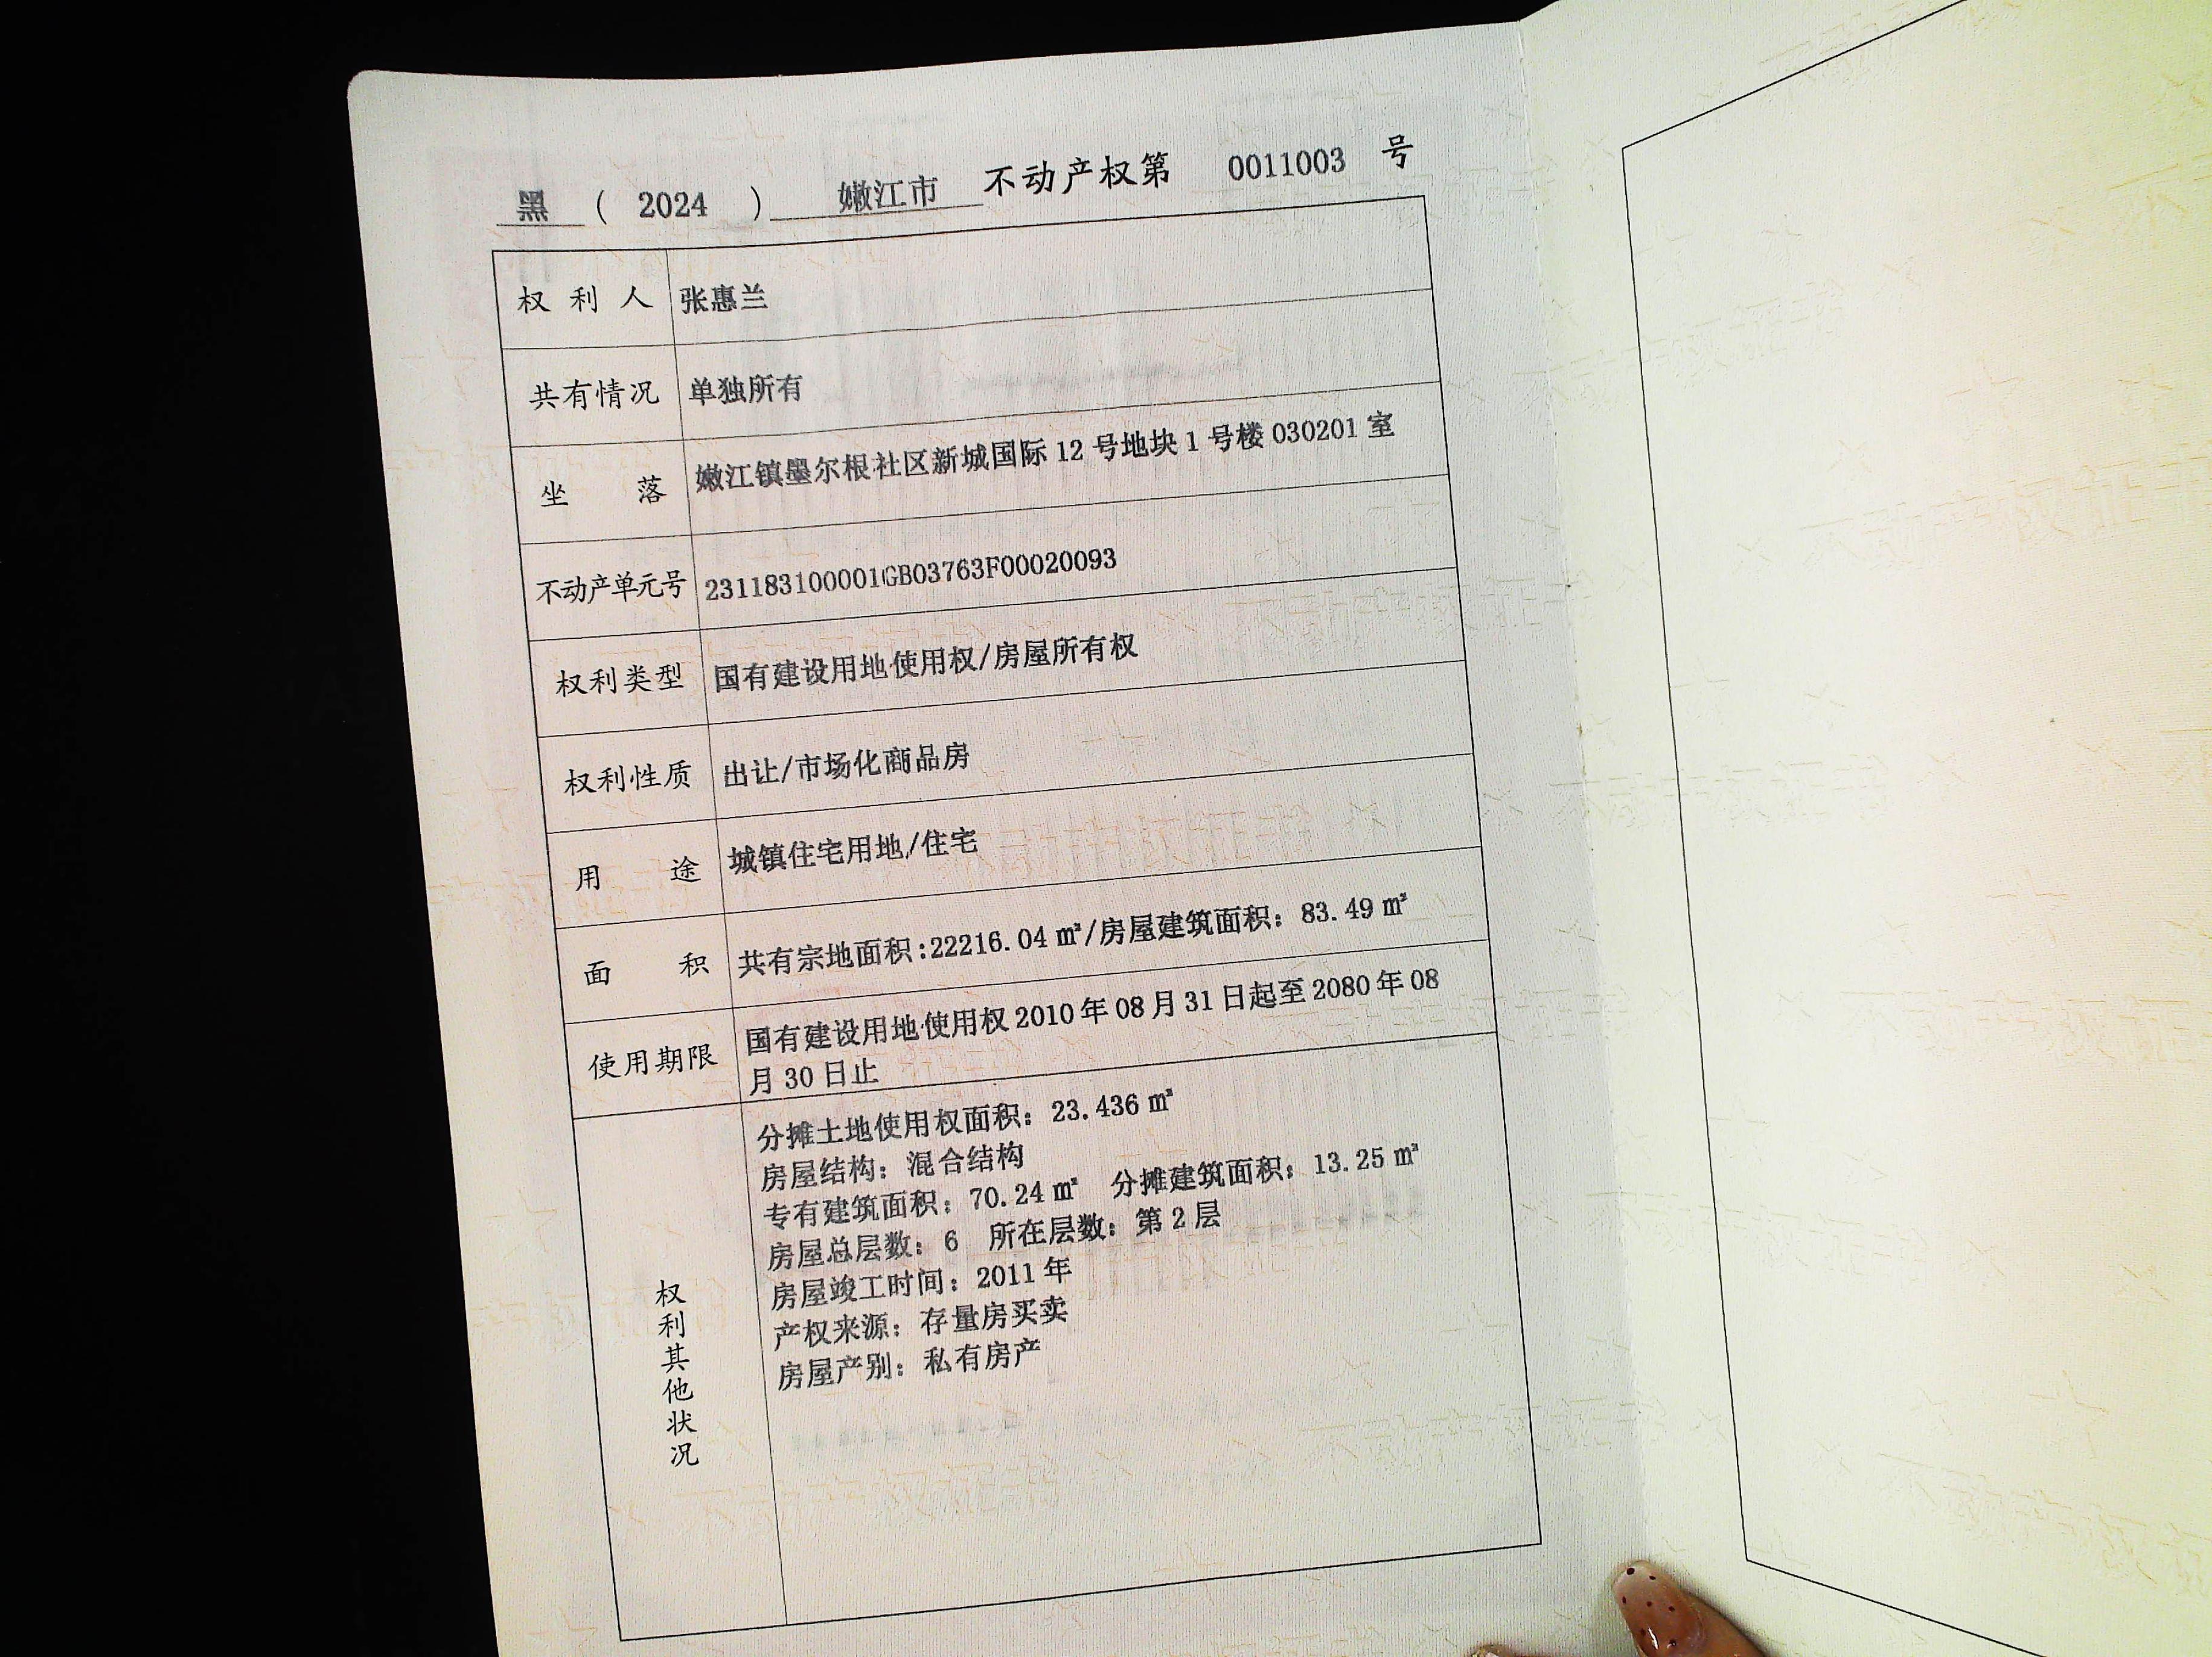 黑 ( 2024 ) 嫩江市 不动产权第 0011003 号
权利人 张惠兰
共有情况 单独所有
坐落 嫩江镇墨尔根社区新城国际 12 号地块 1 号楼 030201 室
不动产单元号 231183100001GB03763F00020093
权利类型 国有建设用地使用权/房屋所有权
权利性质 出让/市场化商品房
用途 城镇住宅用地/住宅
面积 共有宗地面积:22216.04 ㎡/房屋建筑面积：83.49 ㎡
使用期限 国有建设用地使用权 2010 年 08 月 31 日起至 2080 年 08
月 30 日止
权利其他状况
分摊土地使用权面积：23.436 ㎡
房屋结构：混合结构
专有建筑面积：70.24 ㎡ 分摊建筑面积：13.25 ㎡
房屋总层数：6 所在层数：第 2 层
房屋竣工时间：2011 年
产权来源：存量房买卖
房屋产别：私有房产